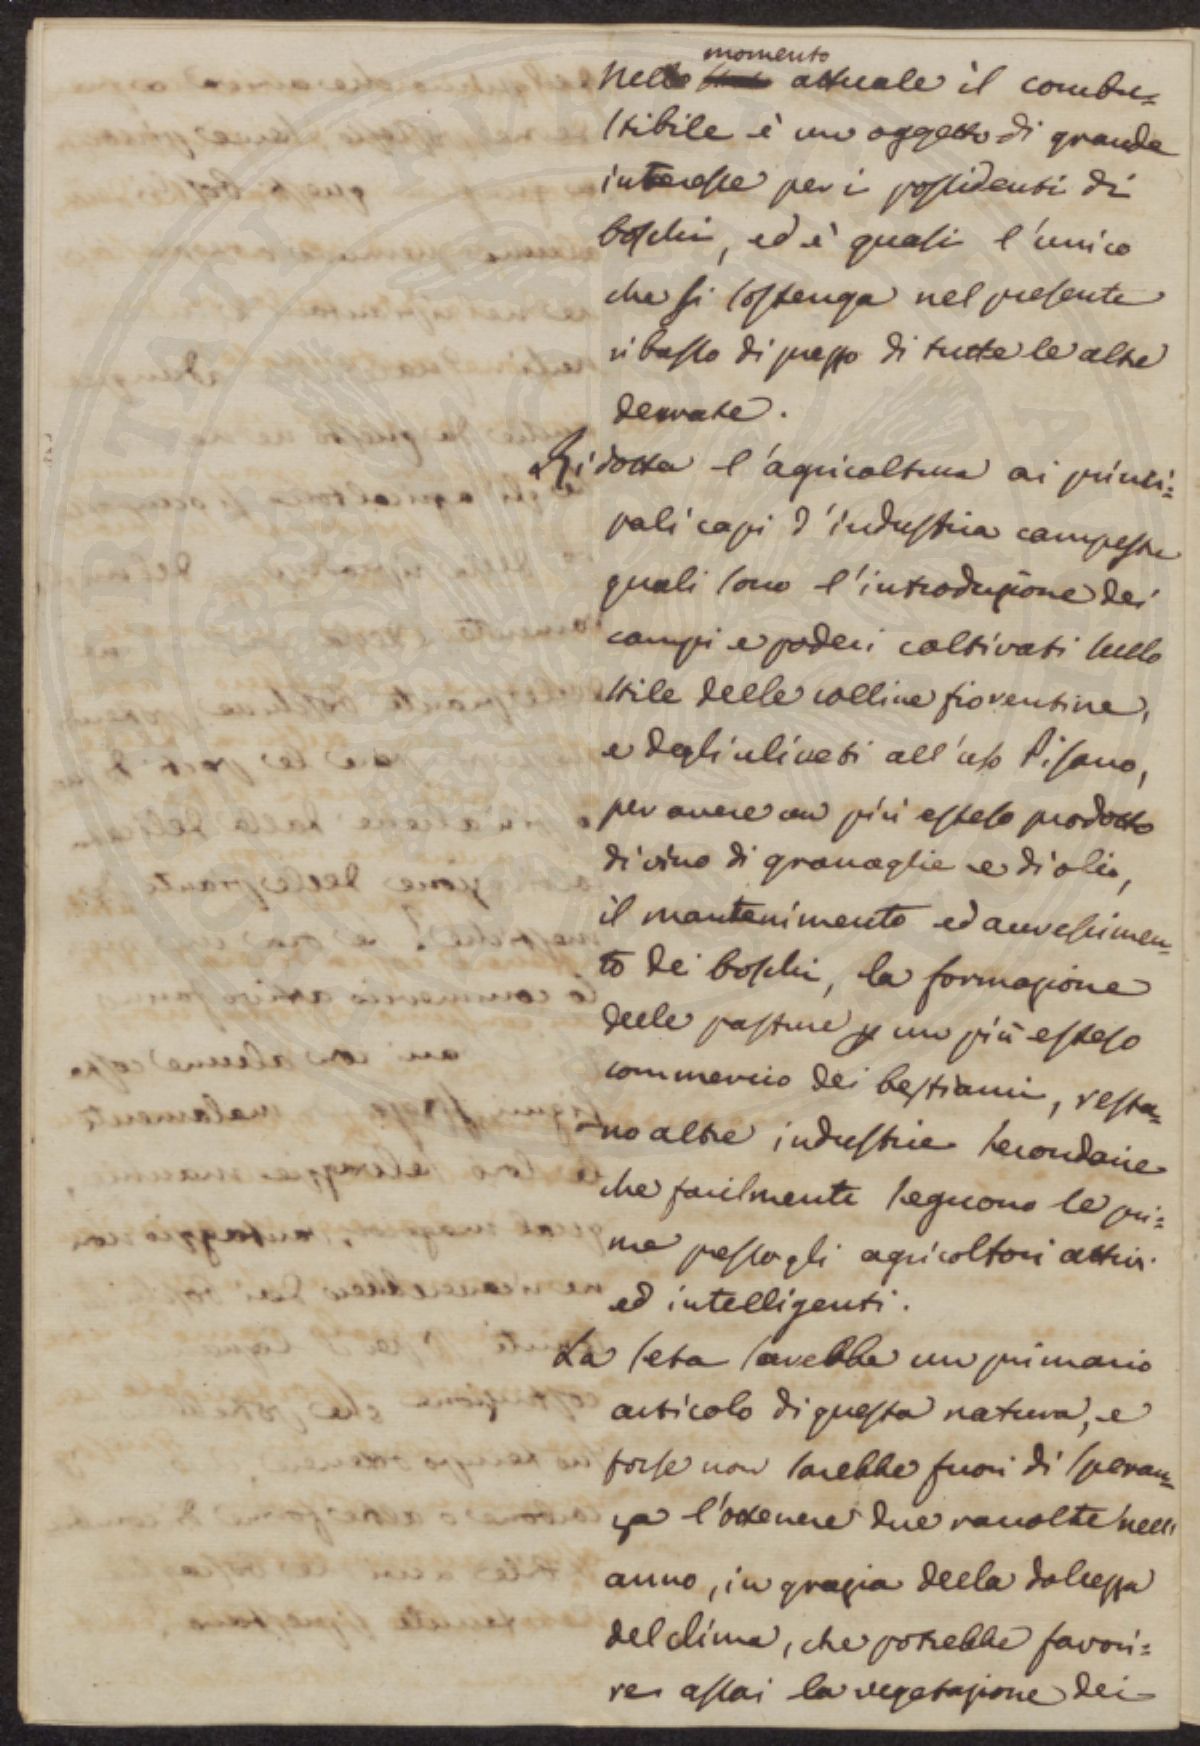 momento
Nello stato attuale il combu=
stibile è un oggetto di grande
interesse per i possidenti di
boschi, ed è quasi l'unico
che si sostenga nel presente
ribasso di prezzo di tutte le altre
derrate.
Ridotta l'agricoltura ai princi=
pali capi d'industria campestre
quali sono l'introduzione dei
campi e poderi coltivati sullo
stile delle colline fiorentine,
e degli uliveti all'uso Pisano,
per avere un più esteso prodotto
di vino di granaglie e di olio,
il mantenimento ed accrescimen=
to dei boschi, la formazione
delle pasture p un più esteso
commercio dei bestiami, resta=
no altre industrie secondarie
che facilmente seguono le pri=
me presso gli agricoltori attivi
ed intelligenti.
La seta sarebbe un primario
articolo di questa natura, e
forse non sarebbe fuori di speran=
za l'ottenere due raccolte nell'
anno, in grazia della dolcezza
del clima, che potrebbe favori=
re assai la vegetazione dei